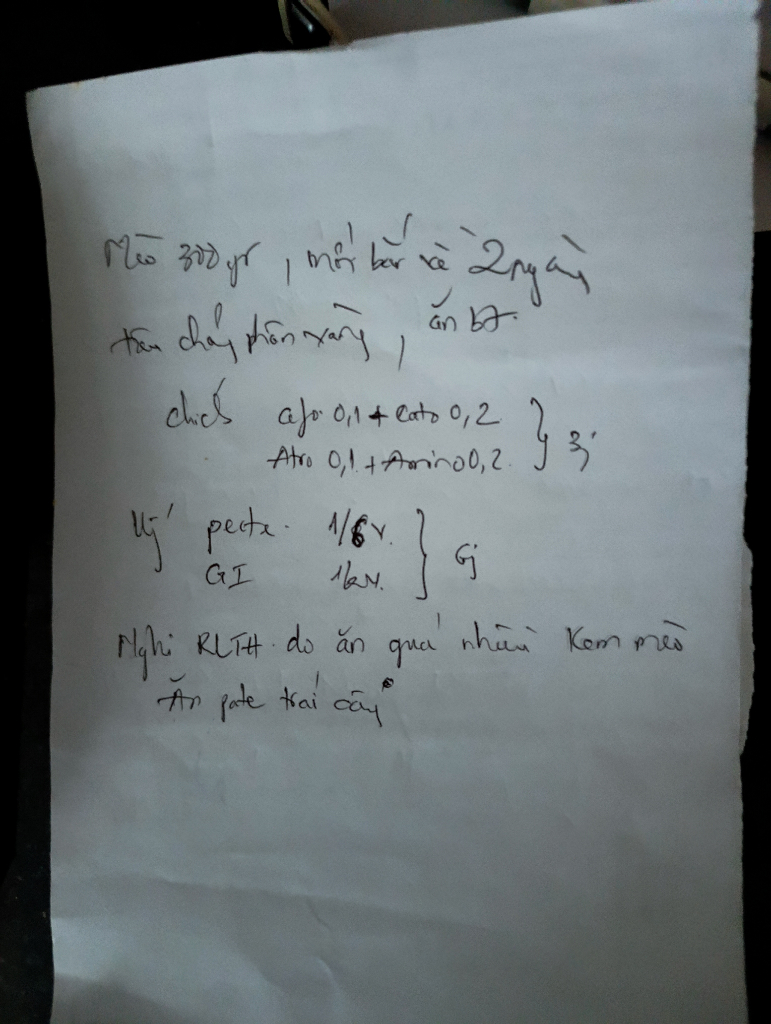 Mèo 300 gr, mới bắt về 2 ngày
tiêu chảy phân vàng, ăn bt.
chích 0,1 + Cato 0,2
Atro 0,1 + Amino 0,2 } 3j
Uj pecta. 1/6 v.
GI 1/2 v. } Gj
Nghi RLTH do ăn quá nhiều Kem mèo
Ăn pate trái cây